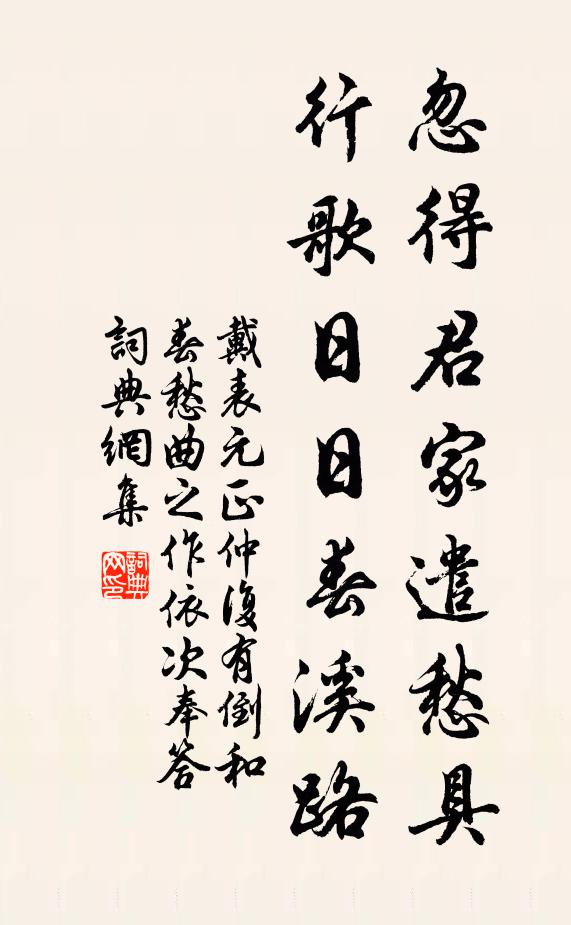 忽得君家遣愁具
行歌日日春溪路
戴表元正仲復有倒和
春愁曲之作依次奉答
詞典網集
詞典網印